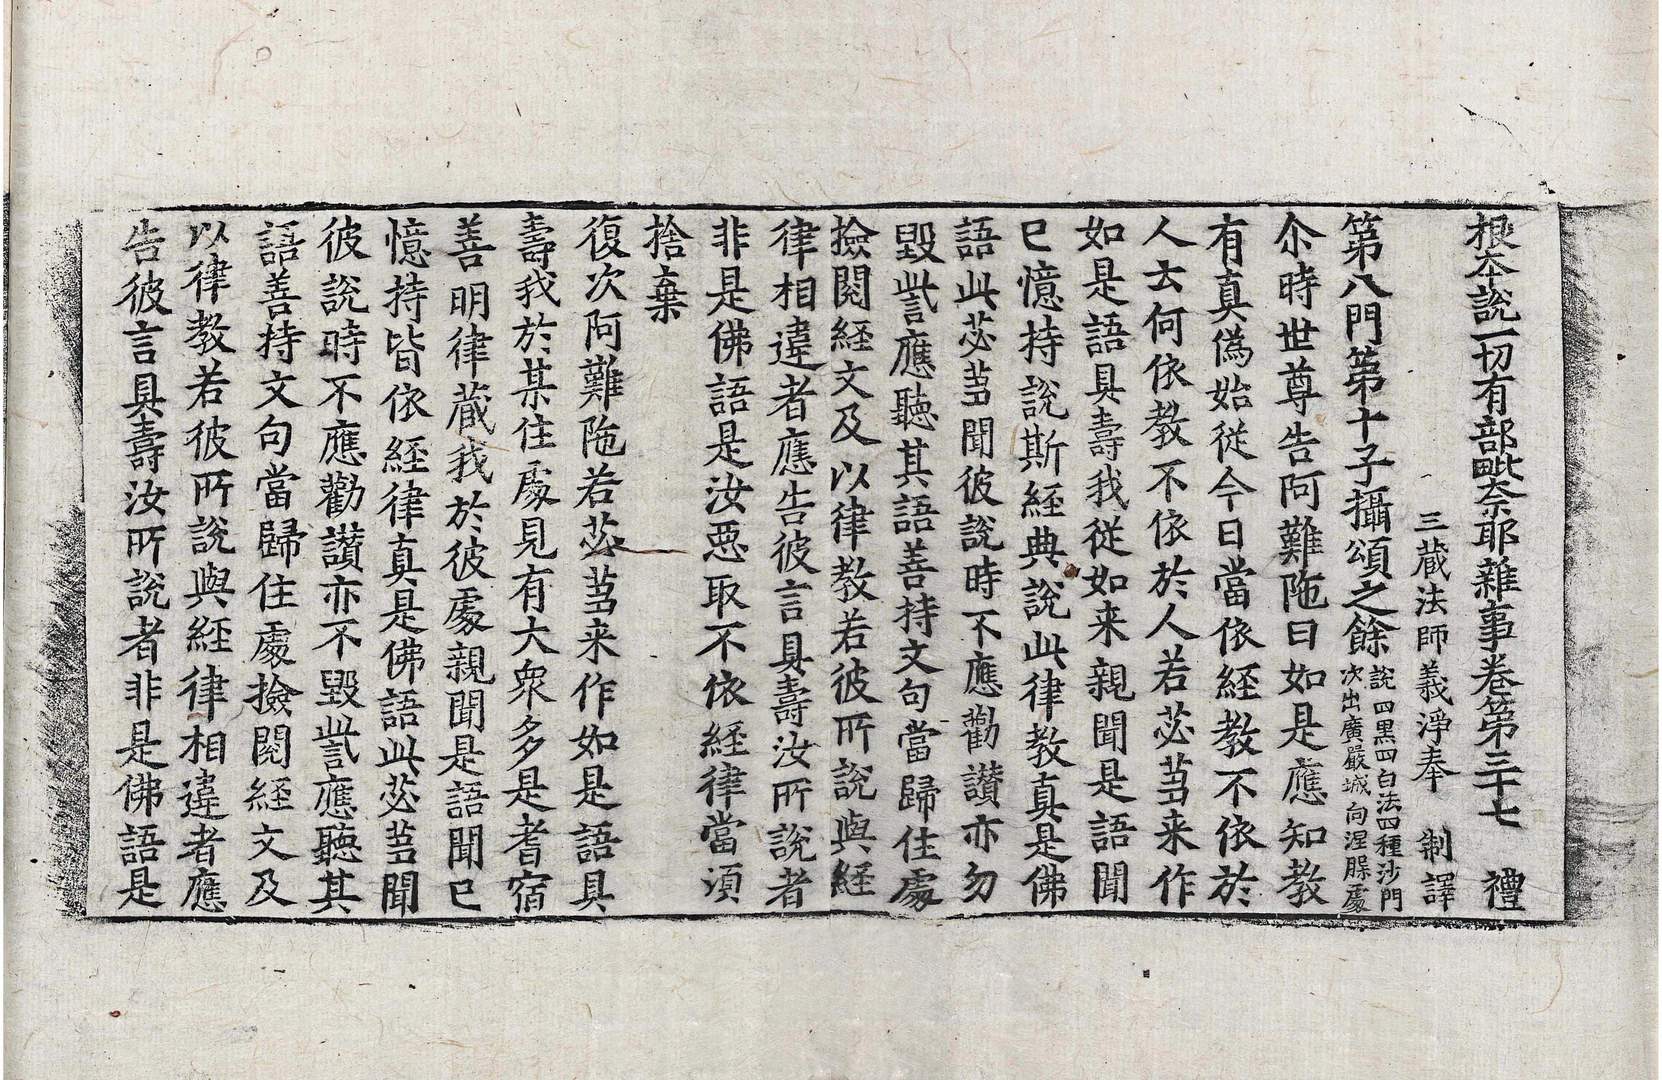 根本説一切有部毗奈耶雜事卷第三十七　禮
三藏法師義淨奉　制譯
第八門第十子攝頌之餘説四黒四白法四種沙門次出廣嚴城向涅槃處
尒時世尊告阿難陁曰如是應知教
有真偽始從今日當依經教不依於
人云何依教不依於人若苾芻来作
如是語具壽我從如来親聞是語聞
已憶持説斯經典説此律教真是佛
語此苾芻聞彼説時不應勸讃亦勿
毀訾應聽其語善持文句當歸住處
撿閱經文及以律教若彼所説與經
律相違者應告彼言具壽汝所説者
非是佛語是汝惡取不依經律當湏
捨棄
復次阿難陁若苾芻来作如是語具
壽我於某住處見有大衆多是耆宿
善明律藏我於彼處親聞是語聞已
憶持皆依經律真是佛語此苾芻聞
彼説時不應勸讃亦不毀訾應聽其
語善持文句當歸住處撿閱經文及
以律教若彼所説與經律相違者應
告彼言具壽汝所説者非是佛語是